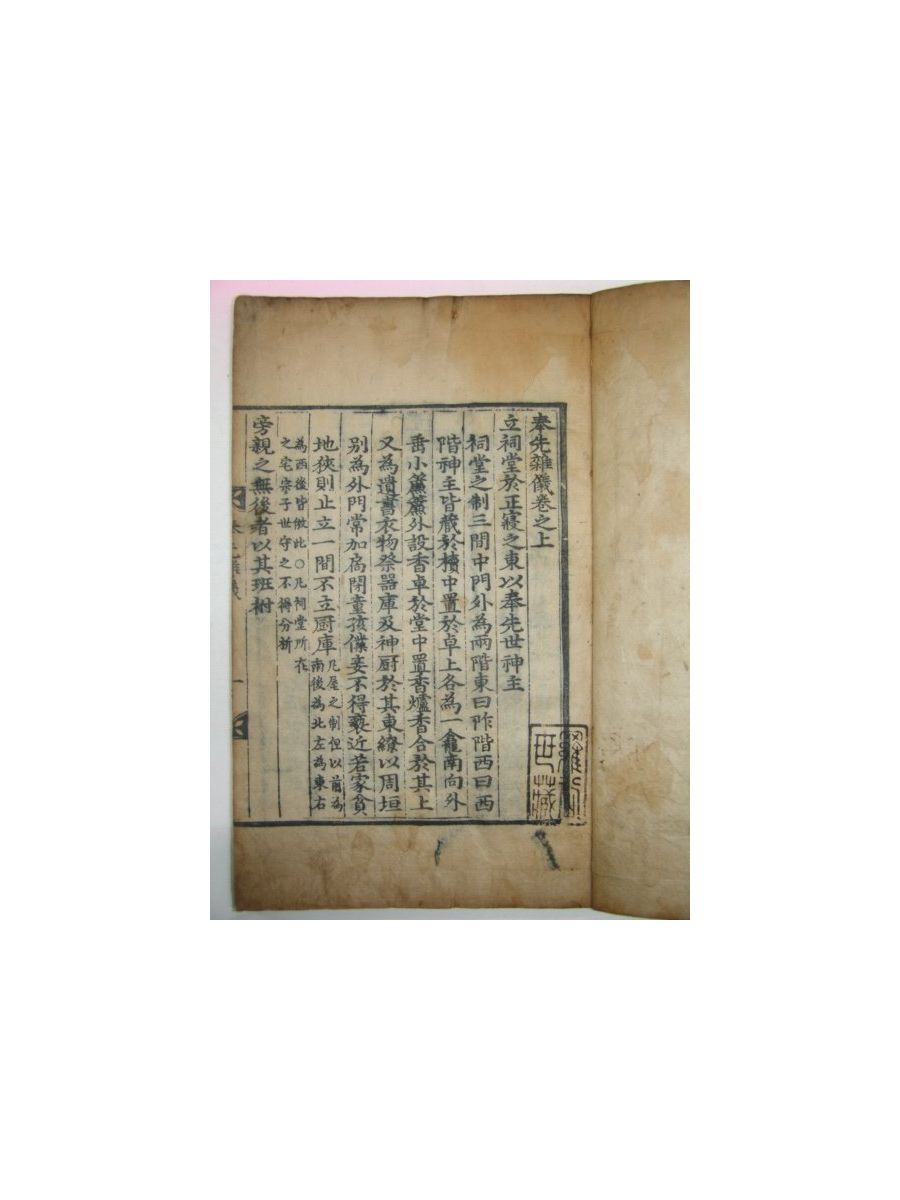 奉先雜儀卷之上
立祠堂於正寢之東以奉先世神主
祠堂之制三間中門外為兩階東曰阼階西曰西
階神主皆藏於櫝中置於卓上各為一龕南向外
垂小簾簾外設香卓於堂中置香爐香合於其上
又為遺書衣物祭器庫及神厨於其東繚以周垣
别為外門常加扃閉童孩僕妾不得褻近若家貧
地狹則止立一間不立厨庫
凡屋之制但以前為
南後為北左為東右
為西後皆倣此○凡祠堂所在
之宅宗子世守之不得分析
旁親之無後者以其班祔
世藏